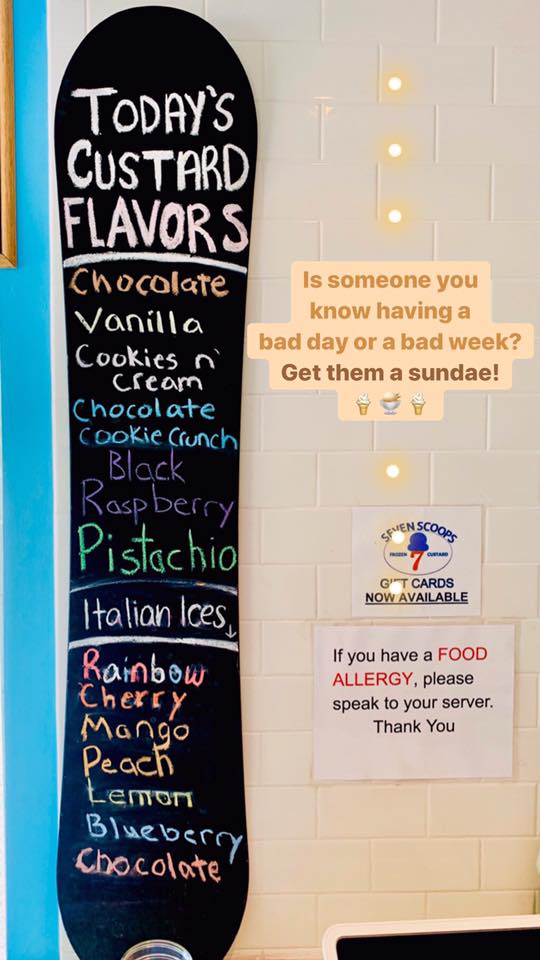 TODAY'S
CUSTARD
FLAVORS
Chocolate
Vanilla
Cookies n'
Cream
Chocolate
Cookie Crunch
Black
Raspberry
Pistachio
Italian Ices↓
Rainbow
Cherry
Mango
Peach
Lemon
Blueberry
Chocolate
Is someone you
know having a
bad day or a bad week?
Get them a sundae!
🍦🍨🍦
SEVEN SCOOPS
FROZEN 7 CUSTARD
GIFT CARDS
NOW AVAILABLE
If you have a FOOD
ALLERGY, please
speak to your server.
Thank You